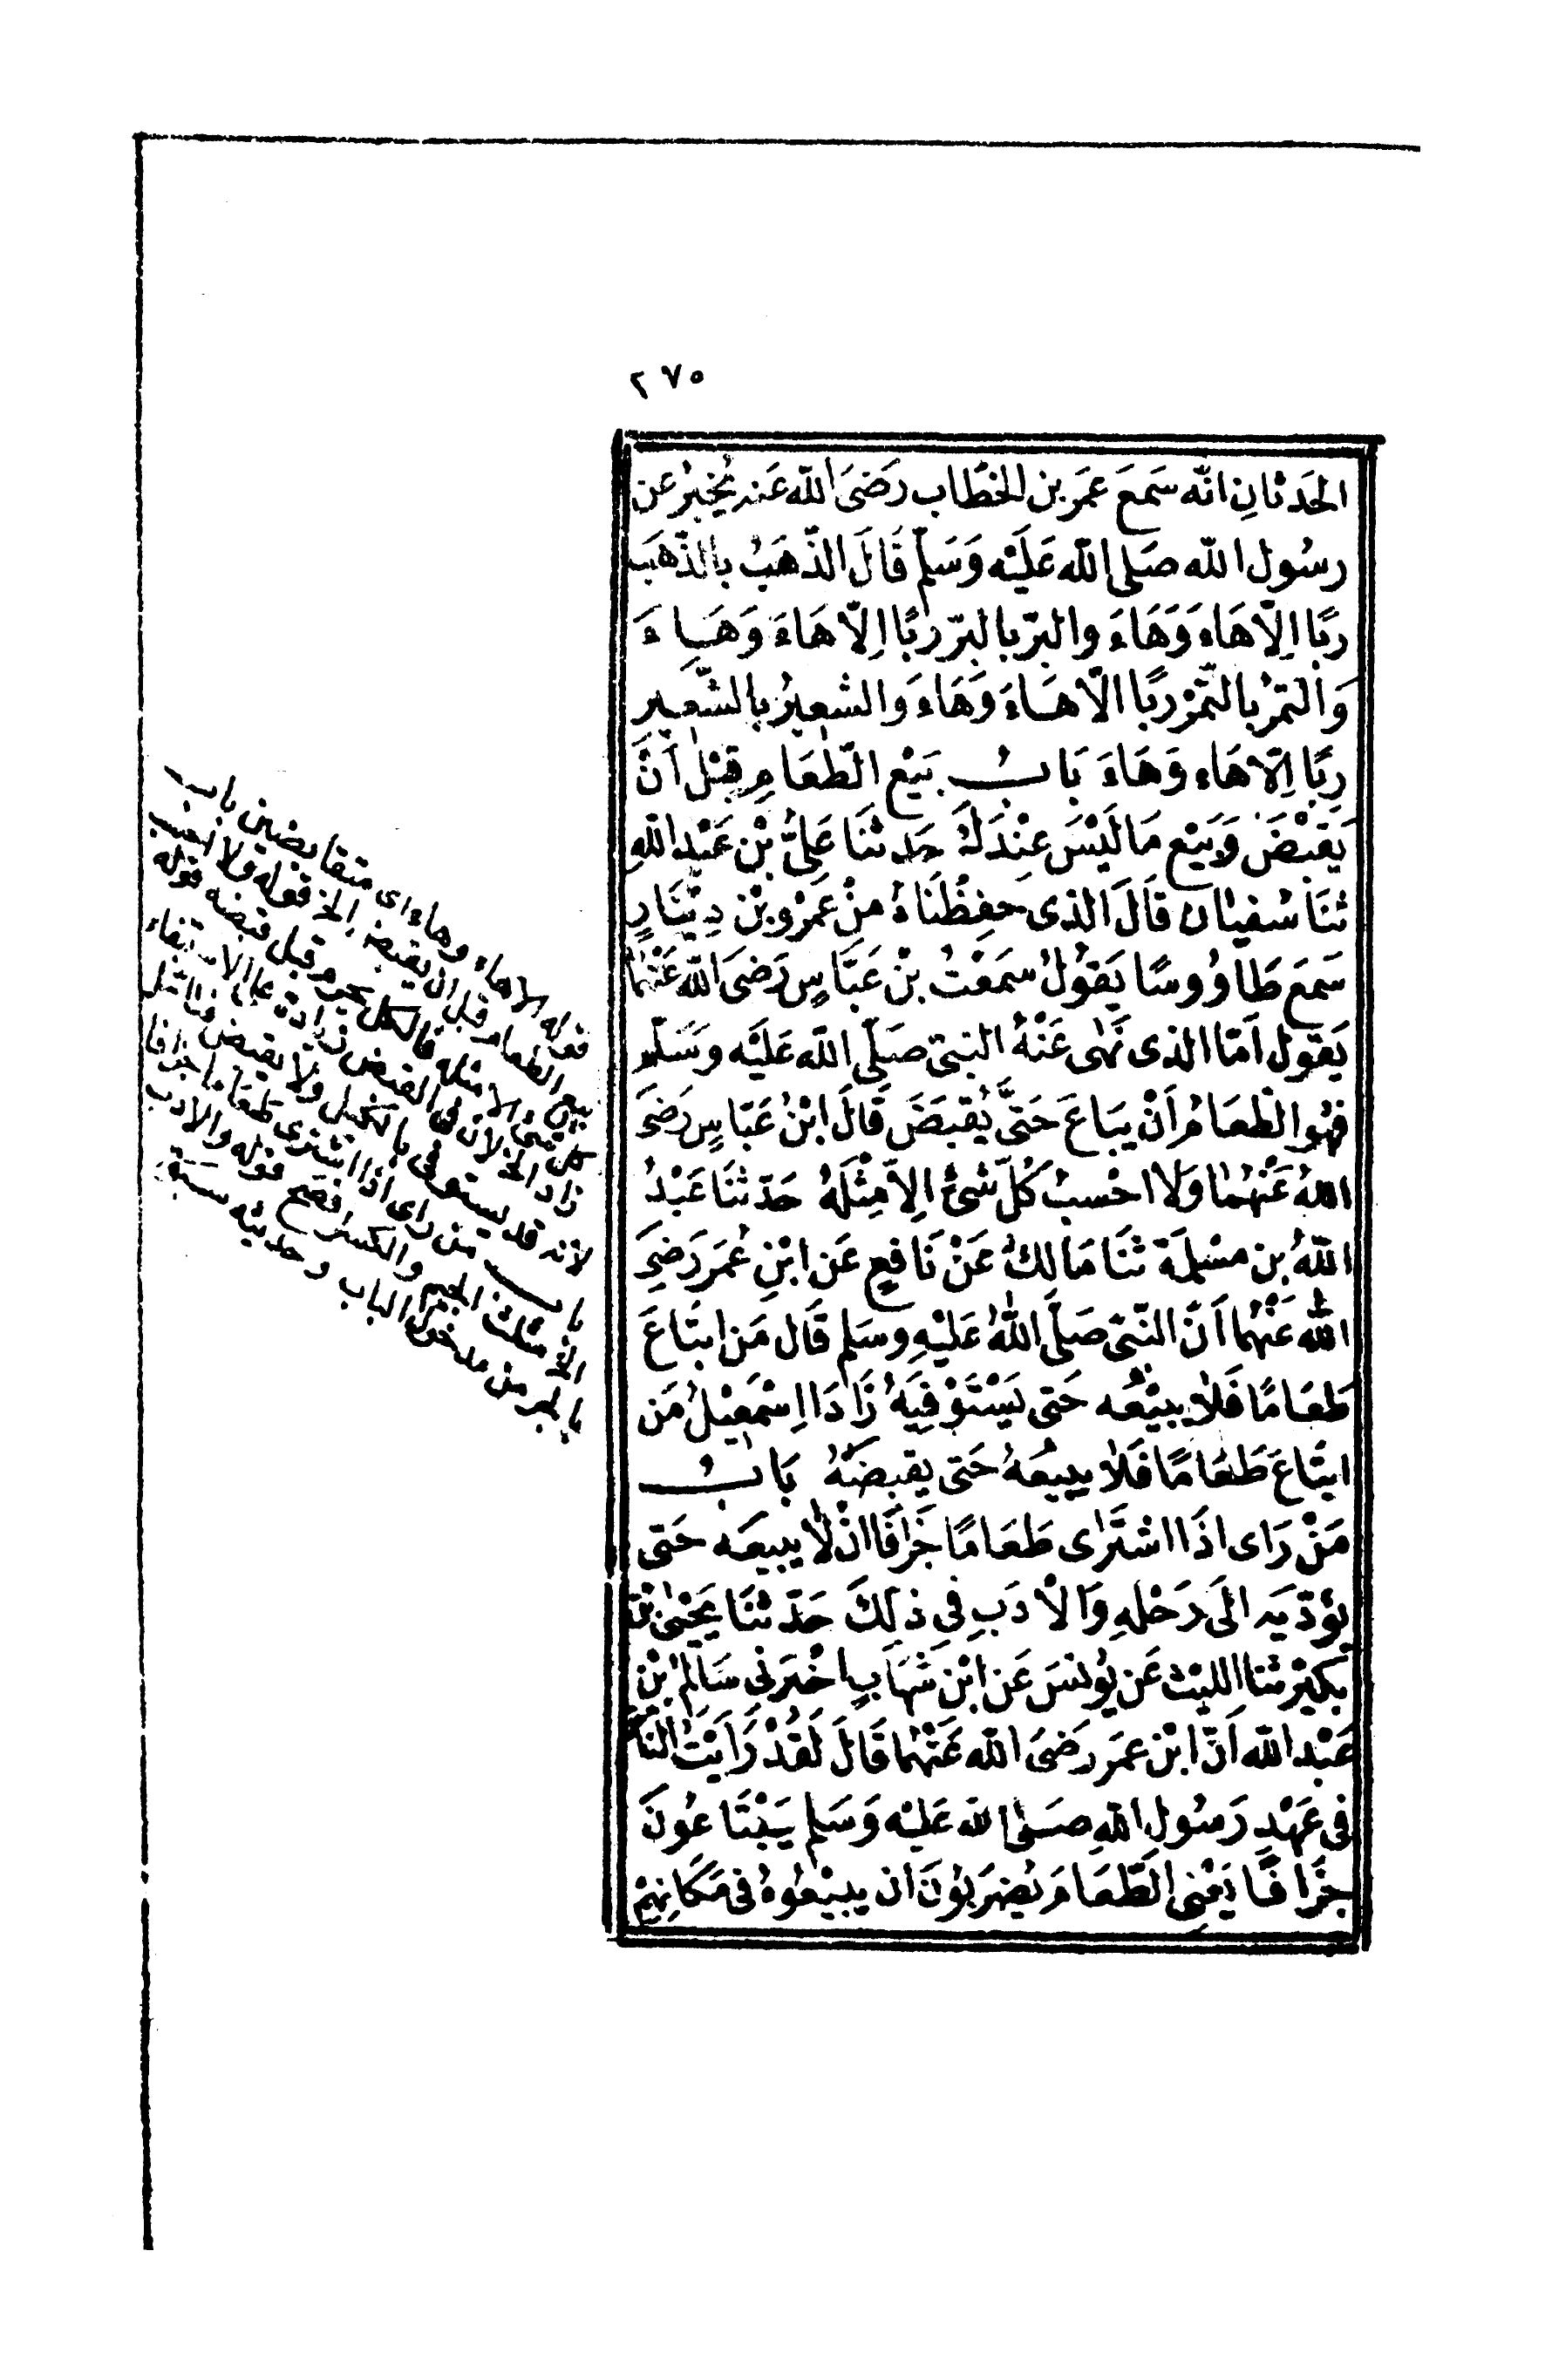 ٢٧٥
الحَدثانِ انّه سَمعَ عمَر بن الخطّاب رَضىَ الله عَنه يُخبِرُ عن
رسُول الله صَلى الله عَلَيْه وَسَلّم قَالَ الذّهَبُ بالذّهَب
ربًا اِلّا هَاءَ وَهَاءَ والبرّ بالبرّ ربًا اِلّا هَاءَ وَهَاءَ
وَالتمرُ بالتّمْر ربًا الّا هَاءَ وَهَاءَ وَالشعِيرُ بالشّعِير
رِبًا اِلّا هَاء وَهَاءَ بَابُ بَيْع الطّعَامِ قبْل اَنْ
يَقبْضَ وَبَيْع مَا لَيْسَ عِنْدَكَ حَدثنَا عَلىُّ بْن عَبْد اللهِ
ثنَا سُفيٰان قَالَ الذى حفِظْنَاهُ منْ عَمْرو بْن دِينَارٍ
سَمعَ طَاوُوسًا يَقوُلُ سَمعْتُ بْن عَبّاسٍ رَضىَ الله عَنْهُمَا
يَقول اَمّا الذى نَهٰى عَنْهُ النبىّ صَلّى الله عَلَيْه وسَلّم
فهُو الطعَامُ اَنْ يبَاعَ حَتىَّ يُقبَضَ قَالَ ابْنُ عَبّاسٍ رَضىَ
اللهُ عَنْهُمَا وَلا احْسبُ كُلّ شَىْءٍ اِلاّ مِثْلَهُ حَدّثنَا عَبْدُ
اللهُ بن مسْلمَة ثنَا مَالكُ عَنْ نَافعٍ عَن ابْنِ عُمَرَ رَضِىَ
الله عَنْهُمَا اَنّ النّبىّ صَلّى اللهُ عَليْهِ وسَلم قَال مَن ابتَاعَ
طَعَامًا فَلا يبيْعُه حَتى يَسْتَوْفِيَهُ زَادَ اِسْمعِيْلُ مَن
ابتَاعَ طَعَامًا فَلا يبيْعَهُ حَتى يقبضَهُ بَابُ
مَنْ رَاى اذَا اشتَرٰى طَعَامًا جَزَافًا انْ لٰا يبيعَه حَتى
يؤدّيَه الَى رَحْلهِ وَالْادَبِ فِى ذٰلكَ حَدّثنَا يَحْيىٰ بْن
بكيْر ثنا الليْث عَن يوُنسَ عَن ابْن شَهَابٍ اخْبَرَنى سَالمُ بْن
عَبْد الله اَنّ ابْن عمَر رَضىَ الله عَنْهُمَا قَالَ لَقدْ رَاَيْتُ النّاسَ
فى عَهْدِ رَسُول اللهِ صَلى الله عَليْه وَسَلم يَبْتَاعُونَ
جزَافًا يَعْنِى الطّعَامَ يُضرَبوُنَ ان يبيْعُوهُ فى مَكَانِهِمْ
قوله الا هاء وهاء اى متقابضين باب
بيع الطعام قبل ان يقبض الخ قوله ولا احسب
كل شئ الا مثله فالكل يحرم قبل قبضه قوله
زاد الخ لان فى القبض زيادة على الاستيفاء
لانه قد يستوفى بالكيل ولا يقبض
باب من راى اذا اشترى طعاما جزافا
الخ مثلث الجيم والكسر افصح قوله والادب
بالجر من مدخول الباب وحديثه سبق